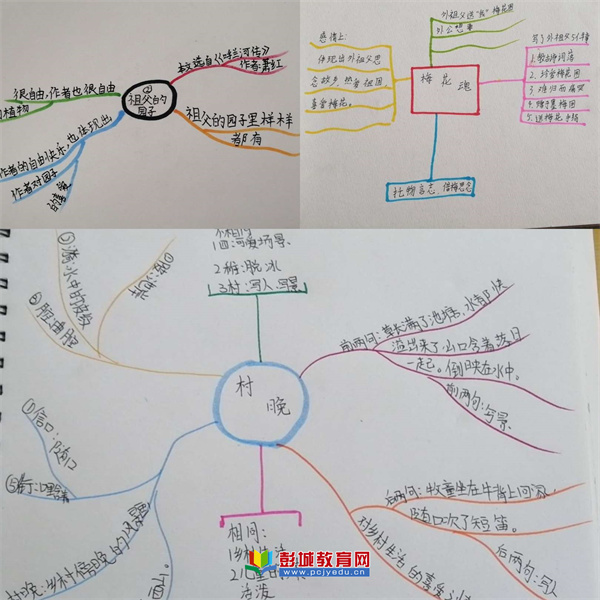 祖父的
园子
本文选自《呼兰河传》
作者:萧红
很自由,作者也很自由
植物
祖父的园子里样样
都有
作者的自由快乐,也体现出
作者对园子
的喜爱
梅花魂
外祖父送“我”梅花图
感情上:
体现出外祖父思
念故乡,热爱祖国,
喜爱梅花。
写了外祖父5件事
1.教读诗词
2.珍爱梅花图
3.难归而痛哭
4.赠予墨梅图
5.送梅花手绢
托物言志,借梅思念
村晚
1四:河
2稚:脱冰
3村:写人、写景
前两句:草长满了池塘,水都快
溢出来了,山口含着落日
一起。倒映在水中。
前两句:写景
后两句:牧童坐在牛背上回家
随口吹了短笛。
后两句:写人
对乡村生活的喜爱
相同:
1乡村生活
2儿童
活泼
村晚:乡村傍晚的风景
彭城教育网
www.pcjyedu.cn